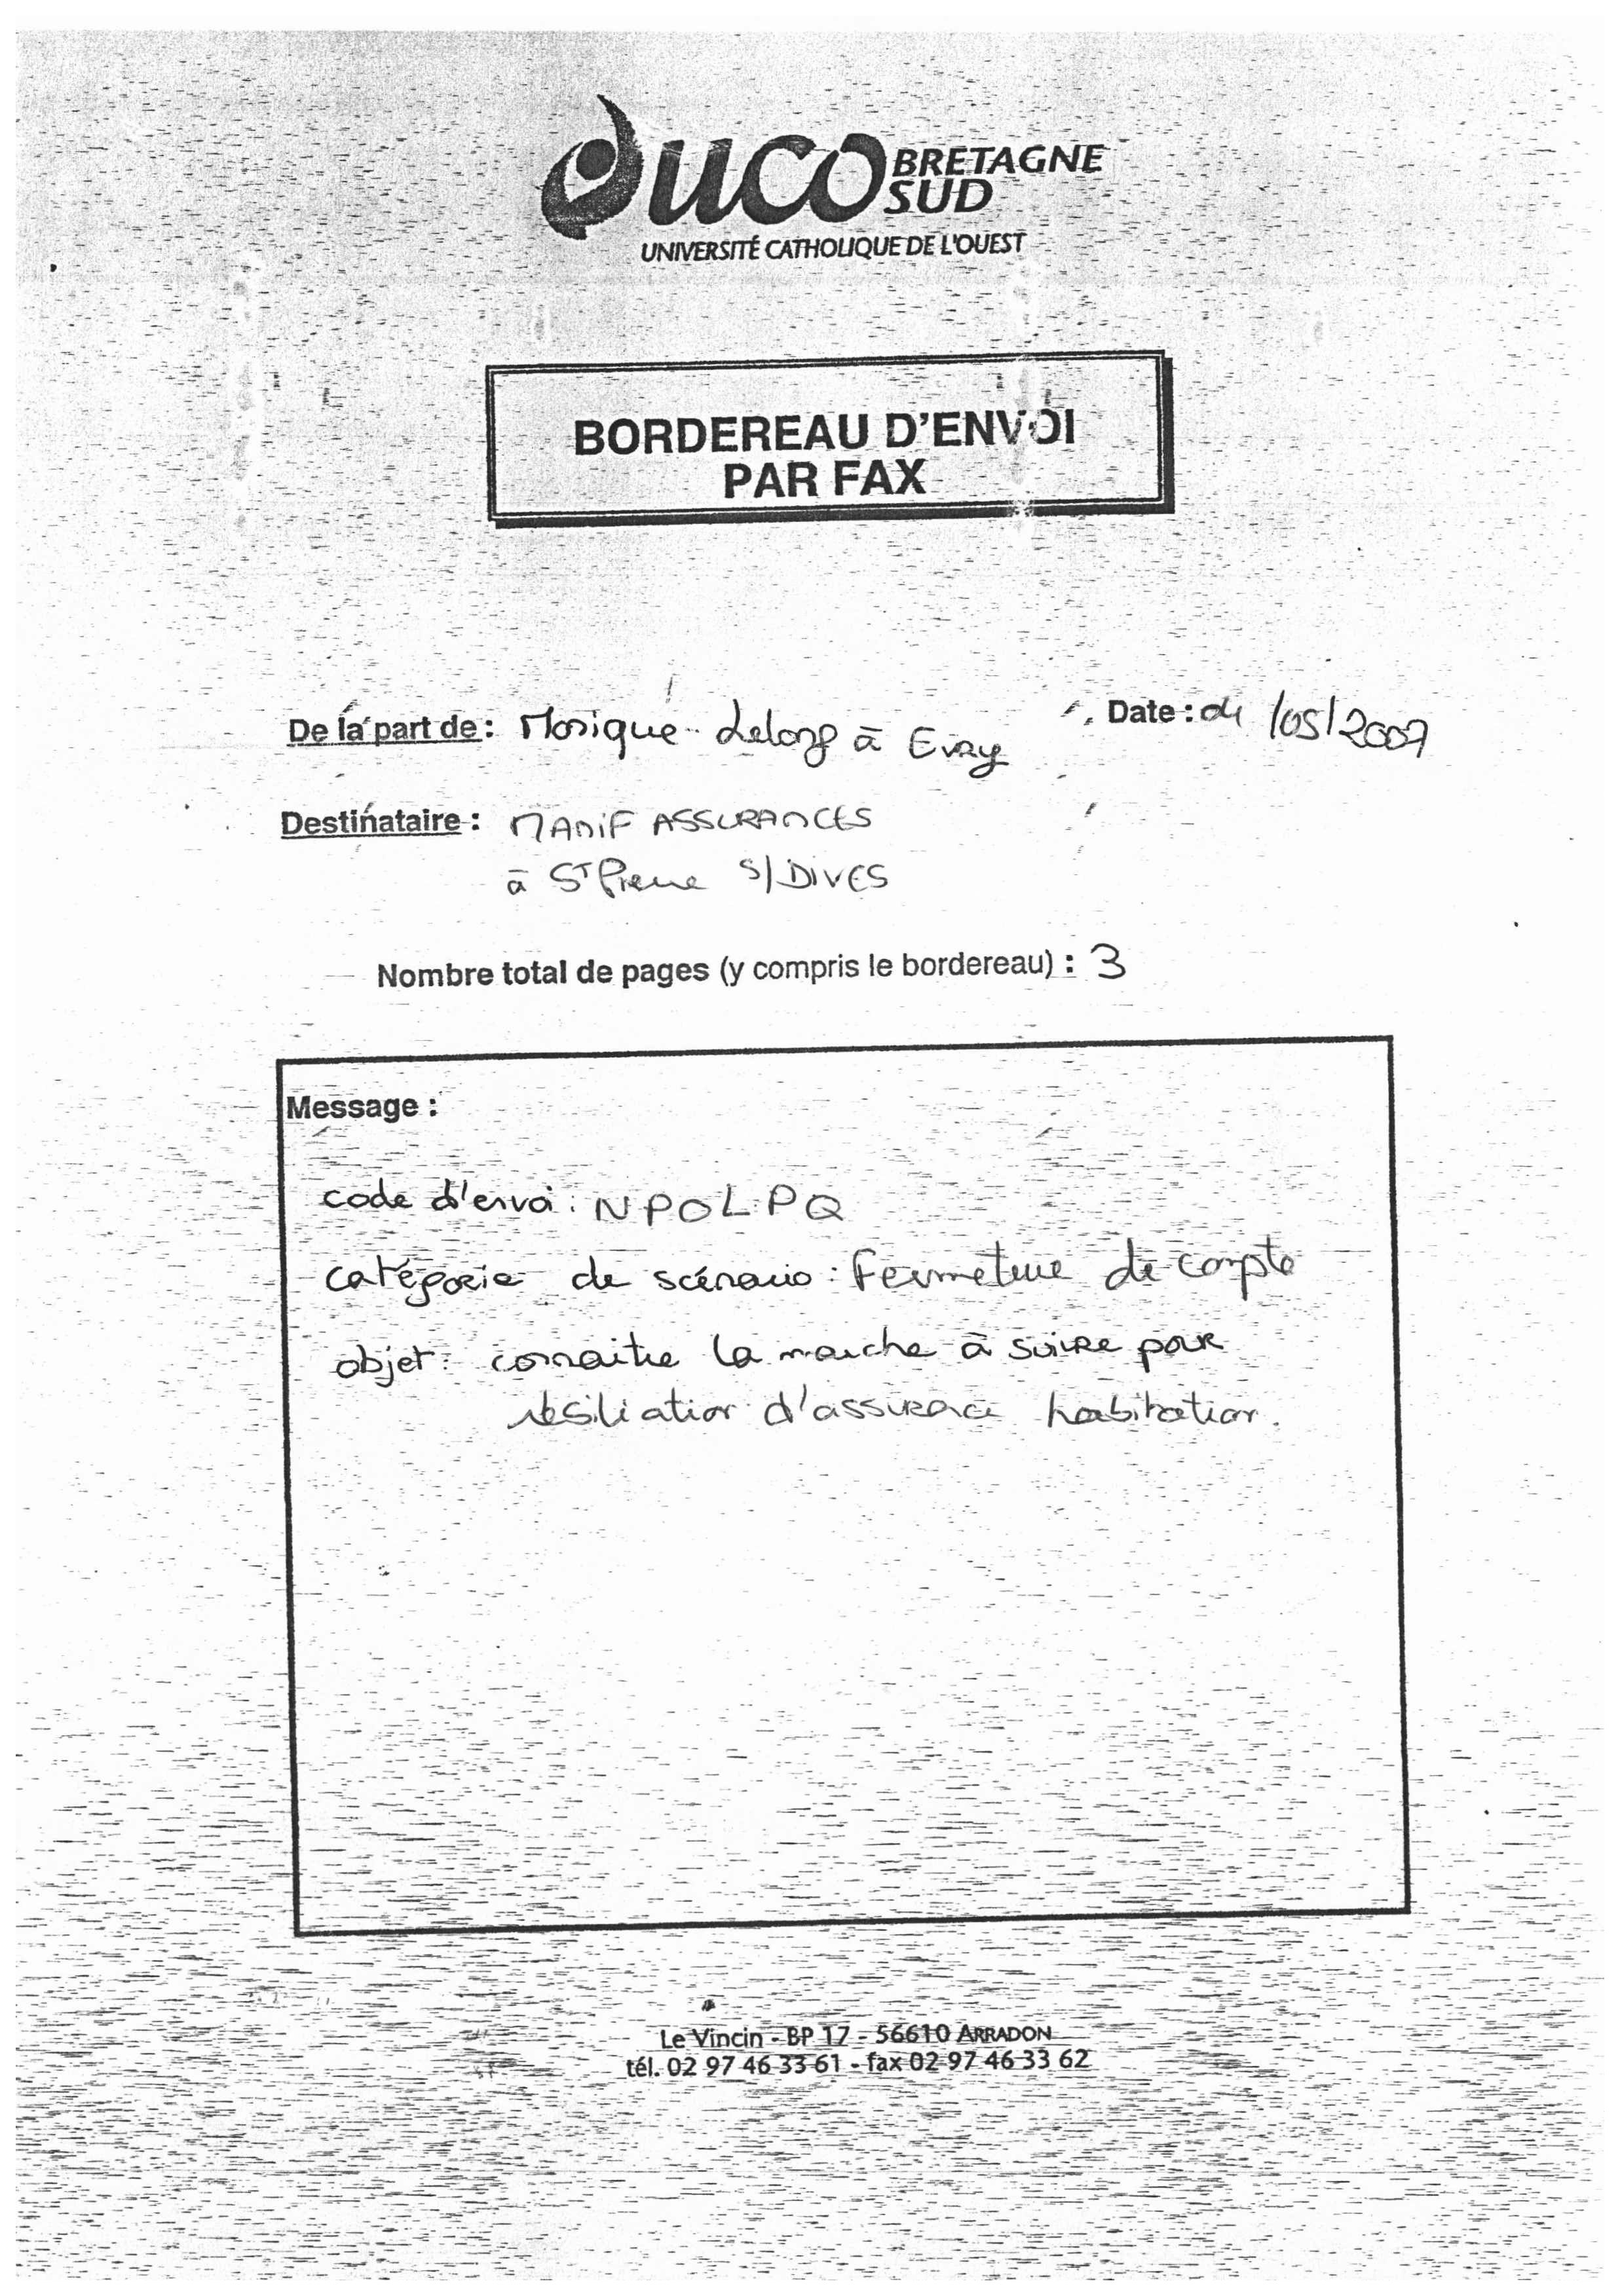 uco BRETAGNE SUD
UNIVERSITÉ CATHOLIQUE DE L'OUEST
BORDEREAU D'ENVOI
PAR FAX
De la part de : Monique Lelong à Evry
Date : 04/05/2007
Destinataire : MANIF ASSURANCES
à St Pierre S/DIVES
Nombre total de pages (y compris le bordereau) : 3
Message :
code d'envoi : NPOLPQ
catégorie de scénario : Fermeture de compte
objet : connaitre la marche à suivre pour
résiliation d'assurance habitation.
Le Vincin - BP 17 - 56610 ARRADON
tél. 02 97 46 33 61 - fax 02 97 46 33 62